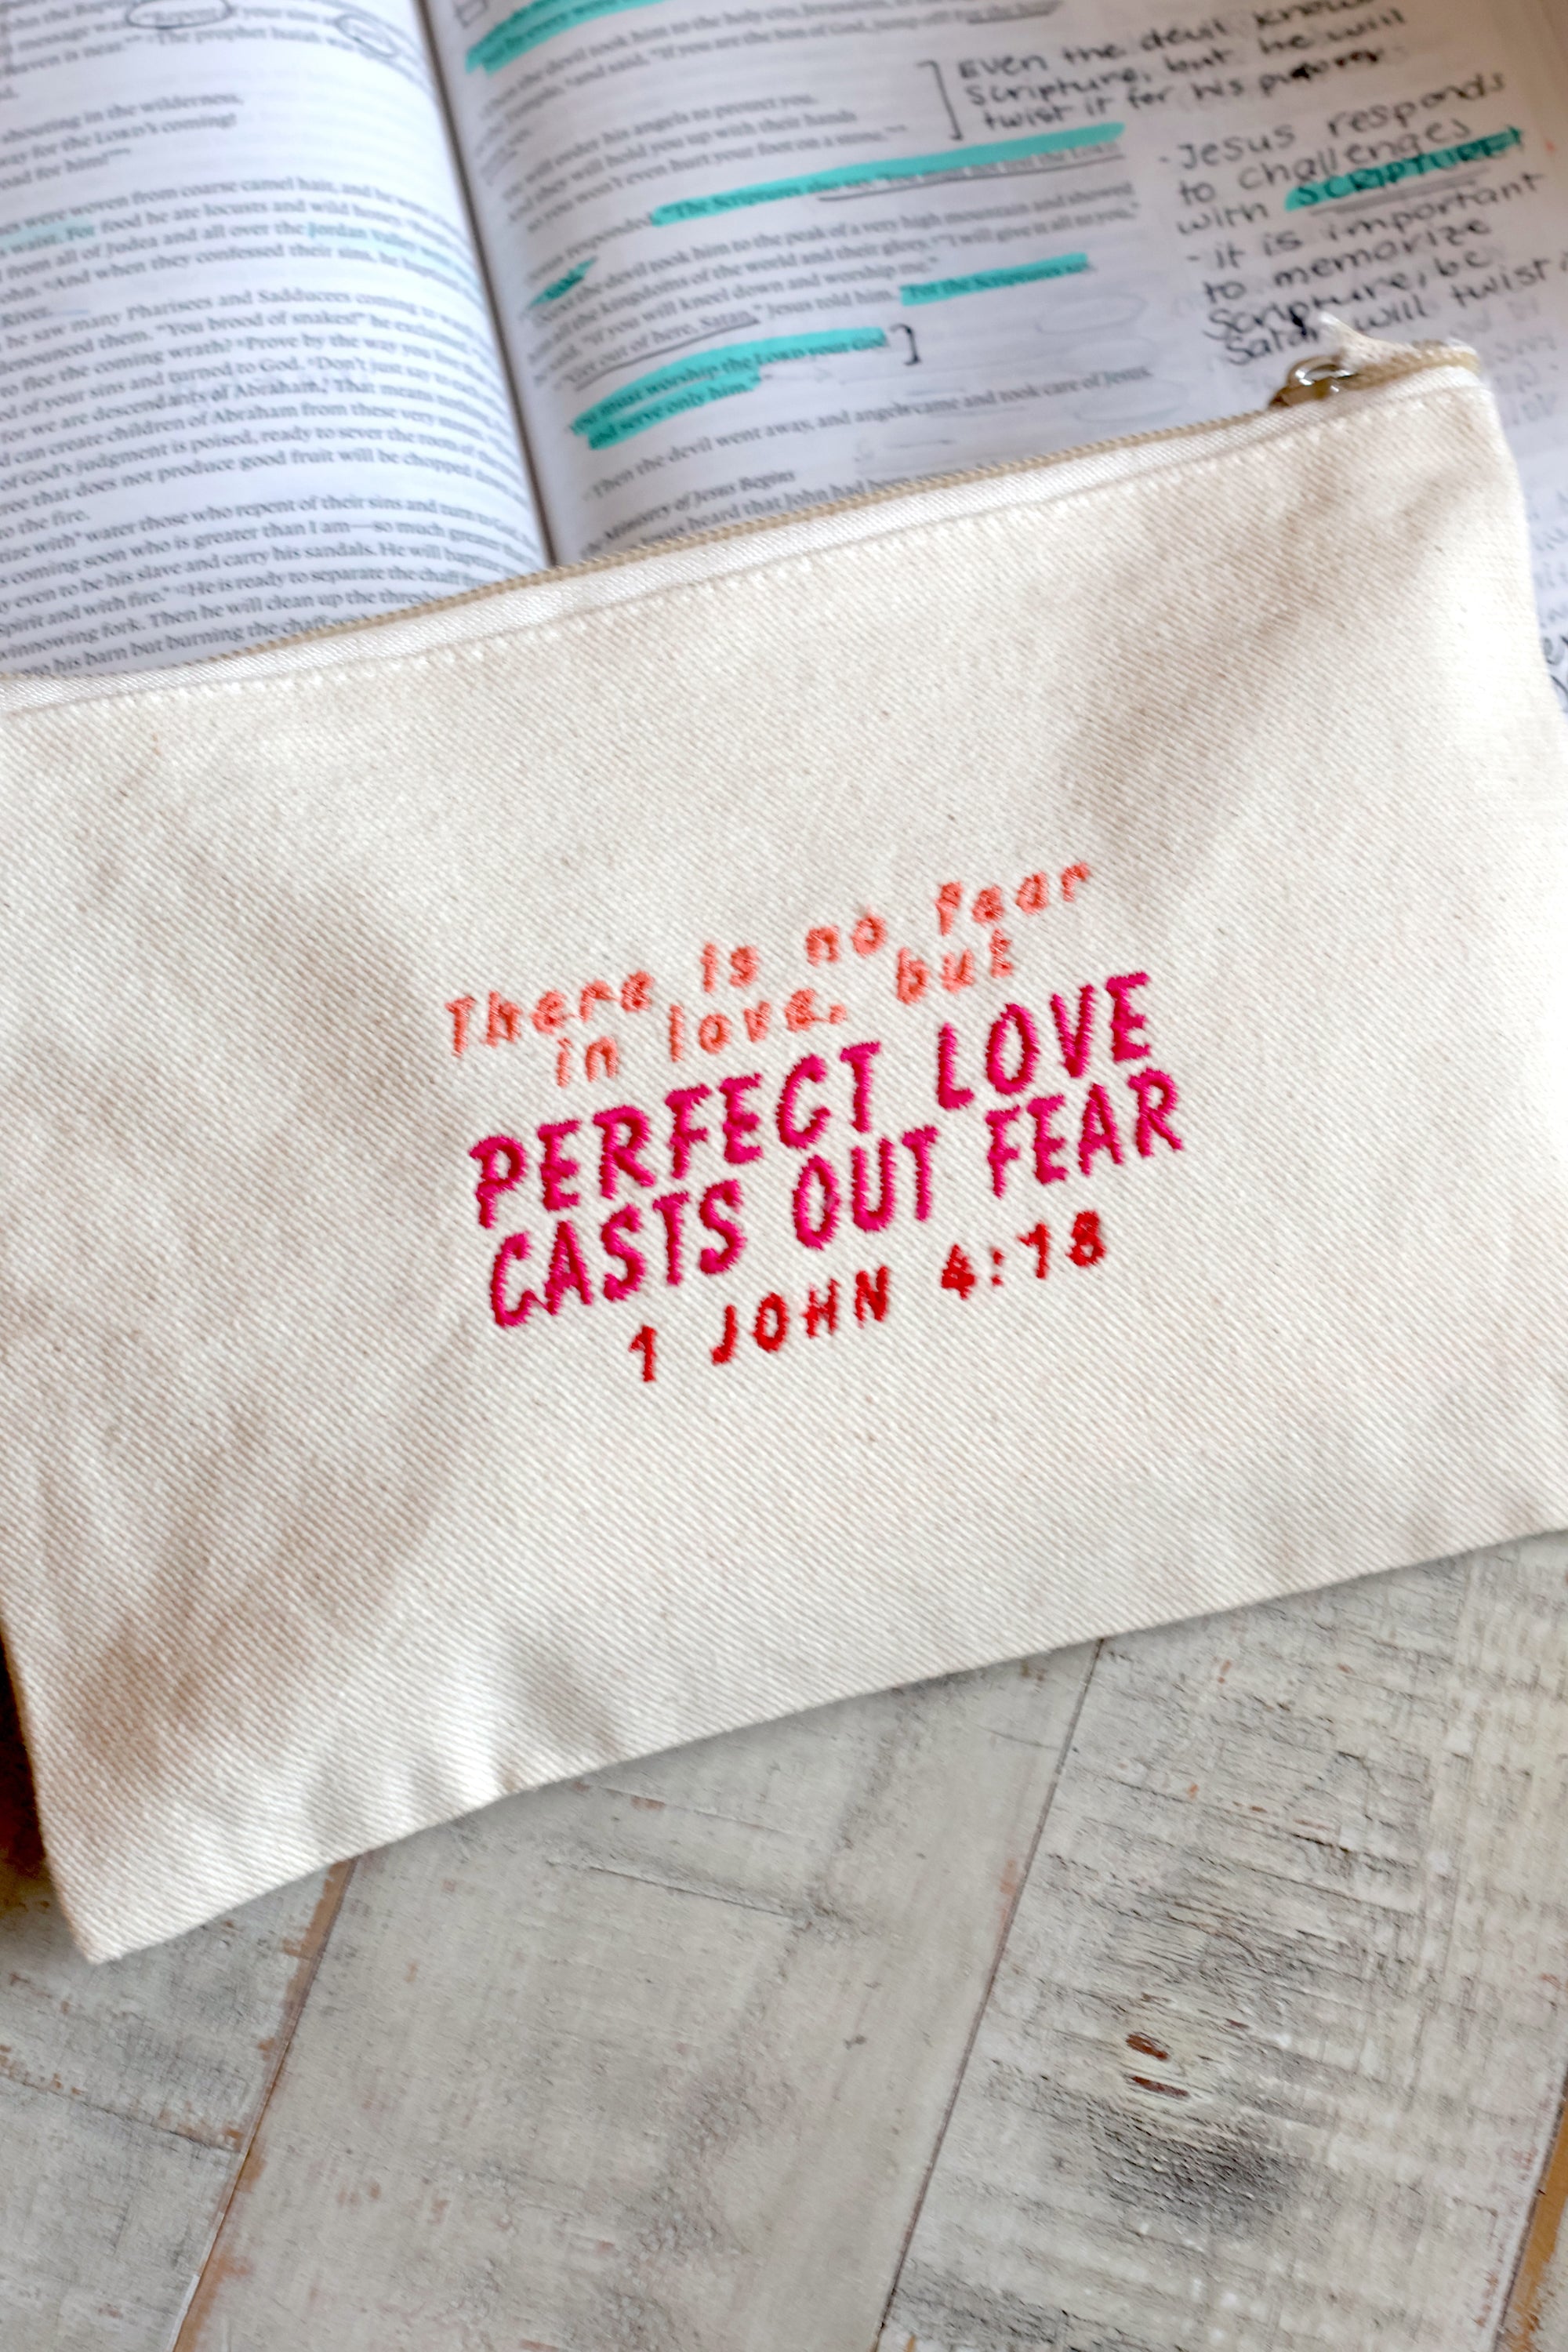 message was
heaven is near." The prophet Isaiah was
shouting in the wilderness,
way for the LORD's coming!
road for him!'"
were woven from coarse camel hair, and he wore a
waist. For food he ate locusts and wild honey.
from all of Judea and all over the Jordan Valley went
John. And when they confessed their sin, he baptized
River.
he saw many Pharisees and Sadducees coming to watch
denounced them. "You brood of snakes!" he exclaimed.
to flee the coming wrath? Prove by the way you live
ed of your sins and turned to God. Don't just say to each
for we are descendants of Abraham.' That means nothing,
d can create children of Abraham from these very stones.
of God's judgment is poised, ready to sever the roots of the
tree that does not produce good fruit will be chopped down
to the fire.
tize with water those who repent of their sins and turn to God.
s coming soon who is greater than I am—so much greater
y even to be his slave and carry his sandals. He will baptize
Spirit and with fire. He is ready to separate the chaff from
winnowing fork. Then he will clean up the threshing
into his barn but burning the chaff
the devil took him to the holy city, Jerusalem,
and said, "If you are the Son of God, jump off
will order his angels to protect you.
they will hold you up with their hands
so you won't even hurt your foot on a stone.'"
responded, "The Scriptures also say, 'You must not test the LORD
the devil took him to the peak of a very high mountain and showed
all the kingdoms of the world and their glory. "I will give it all to you,"
said, "if you will kneel down and worship me."
"Get out of here, Satan," Jesus told him. "For the Scriptures say,
you must worship the LORD your God
and serve only him.'"
Then the devil went away, and angels came and took care of Jesus.
Ministry of Jesus Begins
Jesus heard that John had been
Even the devil knows
Scripture, but he will
twist it for his purpose
- Jesus responds
to challenges
with SCRIPTURE!
- it is important
to memorize
Scripture, bc
Satan will twist it
There is no fear
in love, but
PERFECT LOVE
CASTS OUT FEAR
1 JOHN 4:18